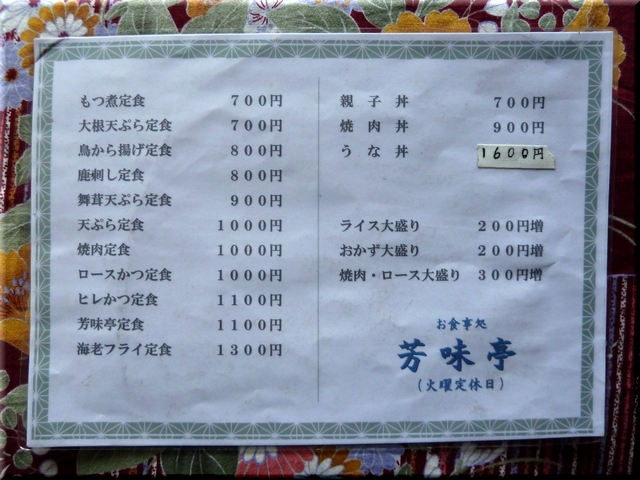 もつ煮定食 700円
大根天ぷら定食 700円
鳥から揚げ定食 800円
鹿刺し定食 800円
舞茸天ぷら定食 900円
天ぷら定食 1000円
焼肉定食 1000円
ロースかつ定食 1000円
ヒレかつ定食 1100円
芳味亭定食 1100円
海老フライ定食 1300円
親子丼 700円
焼肉丼 900円
うな丼 1600円
ライス大盛り 200円増
おかず大盛り 200円増
焼肉・ロース大盛り 300円増
お食事処
芳味亭
(火曜定休日)